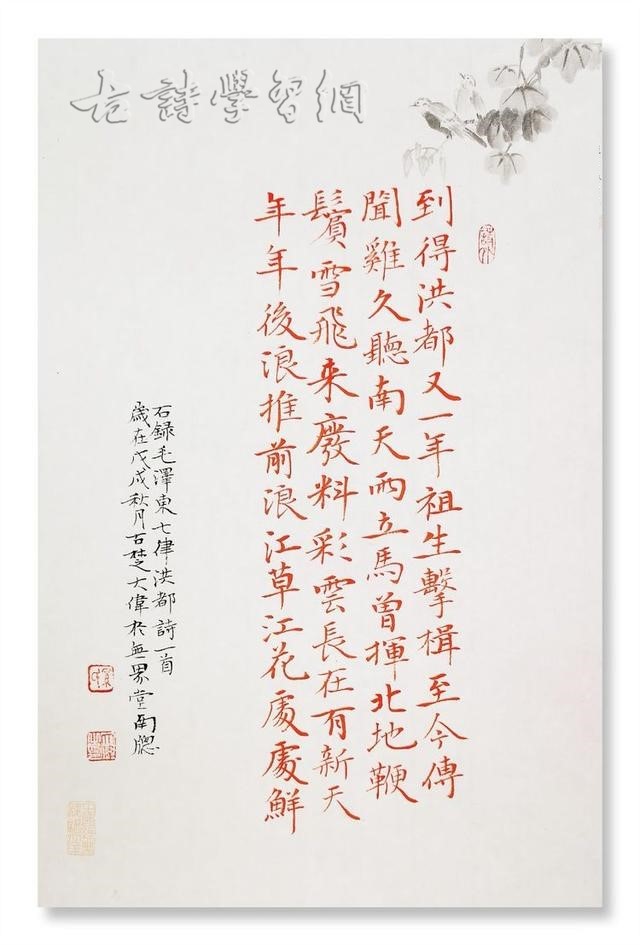 古詩學習網
到得洪都又一年祖生擊楫至今傳
聞雞久聽南天雨立馬曾揮北地鞭
鬢雪飛来廢料彩雲長在有新天
年年後浪推前浪江草江花處處鮮
右録毛澤東七律洪都詩一首
歲在戊戌秋月古楚大偉於無界堂南牕